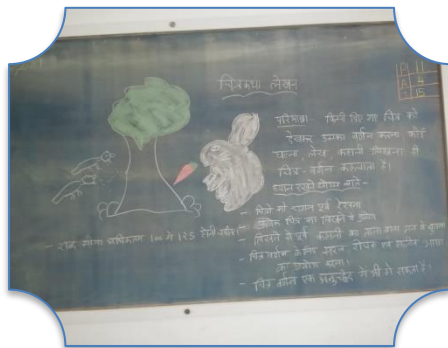 चित्रकथा लेखन
P 11
A 4
T 15
परिभाषा - किसी दिए गए चित्र को
देखकर उसका वर्णन करना कोई
घटना, लेख, कहानी लिखना ही
चित्र-वर्णन कहलाता है।
ध्यान रखने योग्य बातें -
- चित्रों को ध्यान पूर्व देखना
चित्र का
- लिखने से पूर्व कहानी का
- चित्र वर्णन सरल रोचक एवं
का प्रयोग करना।
- चित्र वर्णन एक अनुच्छेद में भी हो सकता है।
- शब्द सीमा अधिकतम 100 से 125 होनी चाहिए।